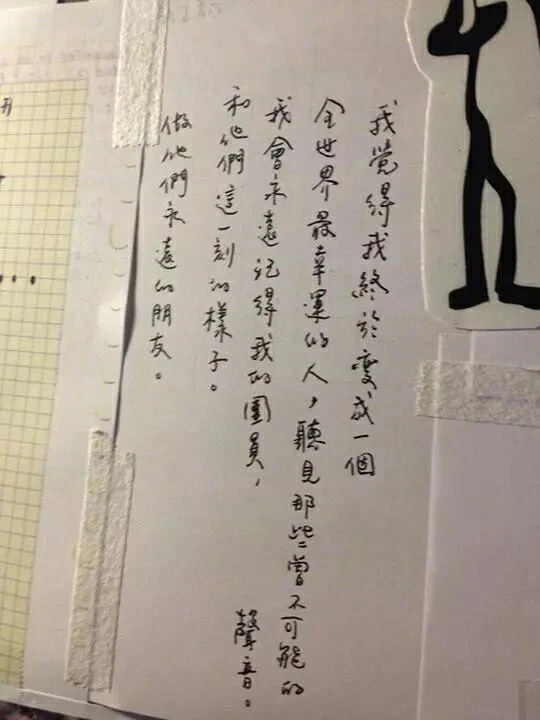 我覺得我終於變成一個
全世界最幸運的人，聽見那些曾不可能的
聲音。
我會永遠記得我的團員，
和他們這一刻的樣子。
做他們永遠的朋友。